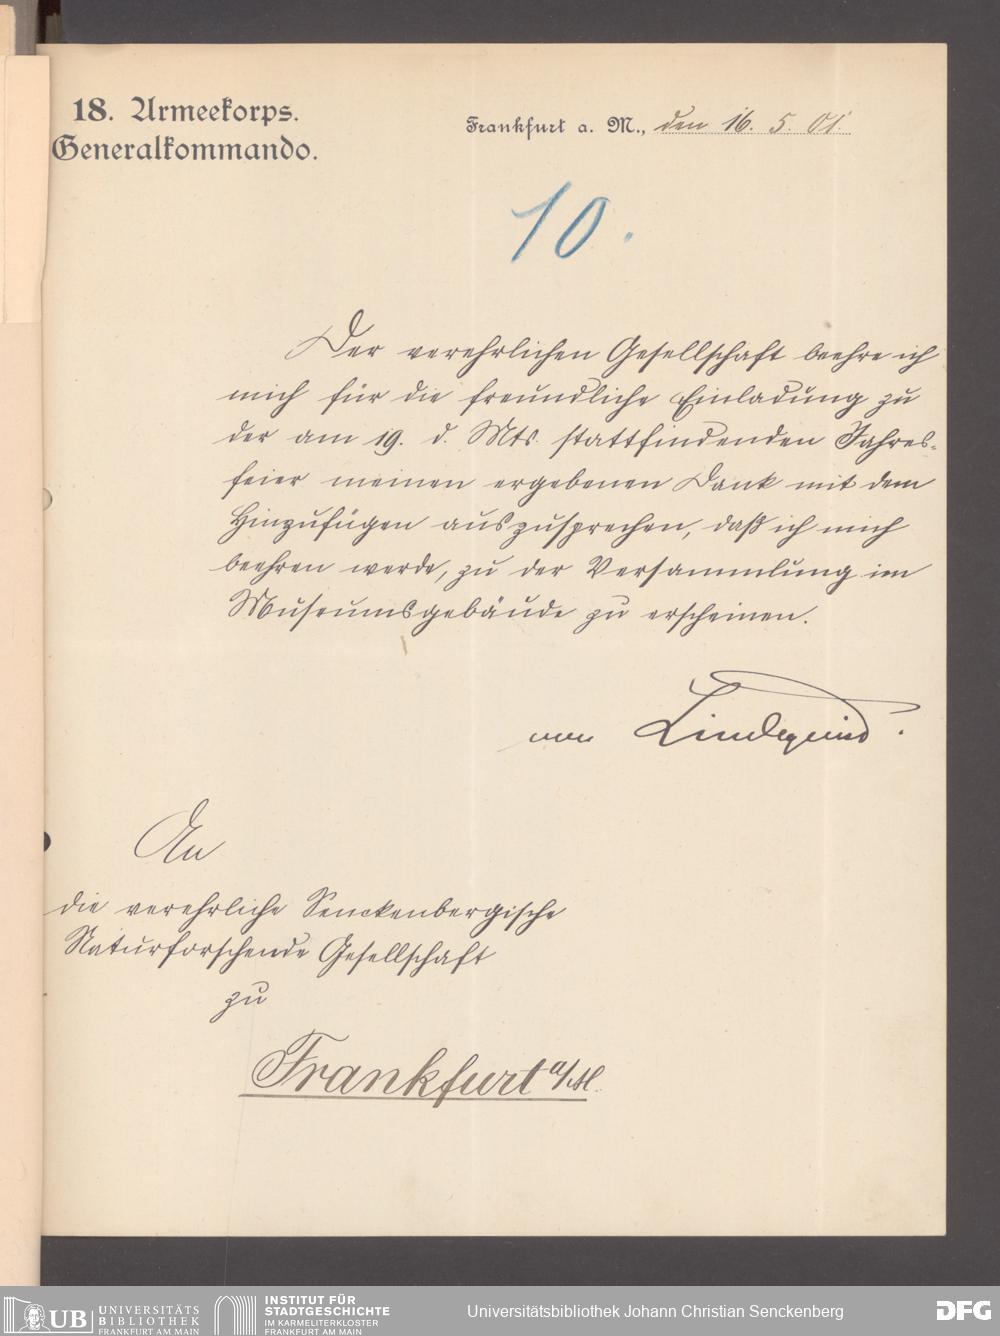 18. Armeekorps.
Generalkommando.
Frankfurt a. M., den 16. 5. 01.
10.
Der verehrlichen Gesellschaft beehre ich
mich für die freundliche Einladung zu
der am 19. d. Mts. stattfindenden Jahres-
feier meinen ergebenen Dank mit dem
Hinzufügen auszusprechen, daß ich mich
beehren werde, zu der Versammlung im
Museumsgebäude zu erscheinen.
von Lindequist.
An
die verehrliche Senckenbergische
Naturforschende Gesellschaft
zu
Frankfurt a/M.
UB UNIVERSITÄTS
BIBLIOTHEK
FRANKFURT AM MAIN
INSTITUT FÜR
STADTGESCHICHTE
IM KARMELITERKLOSTER
FRANKFURT AM MAIN
Universitätsbibliothek Johann Christian Senckenberg
DFG